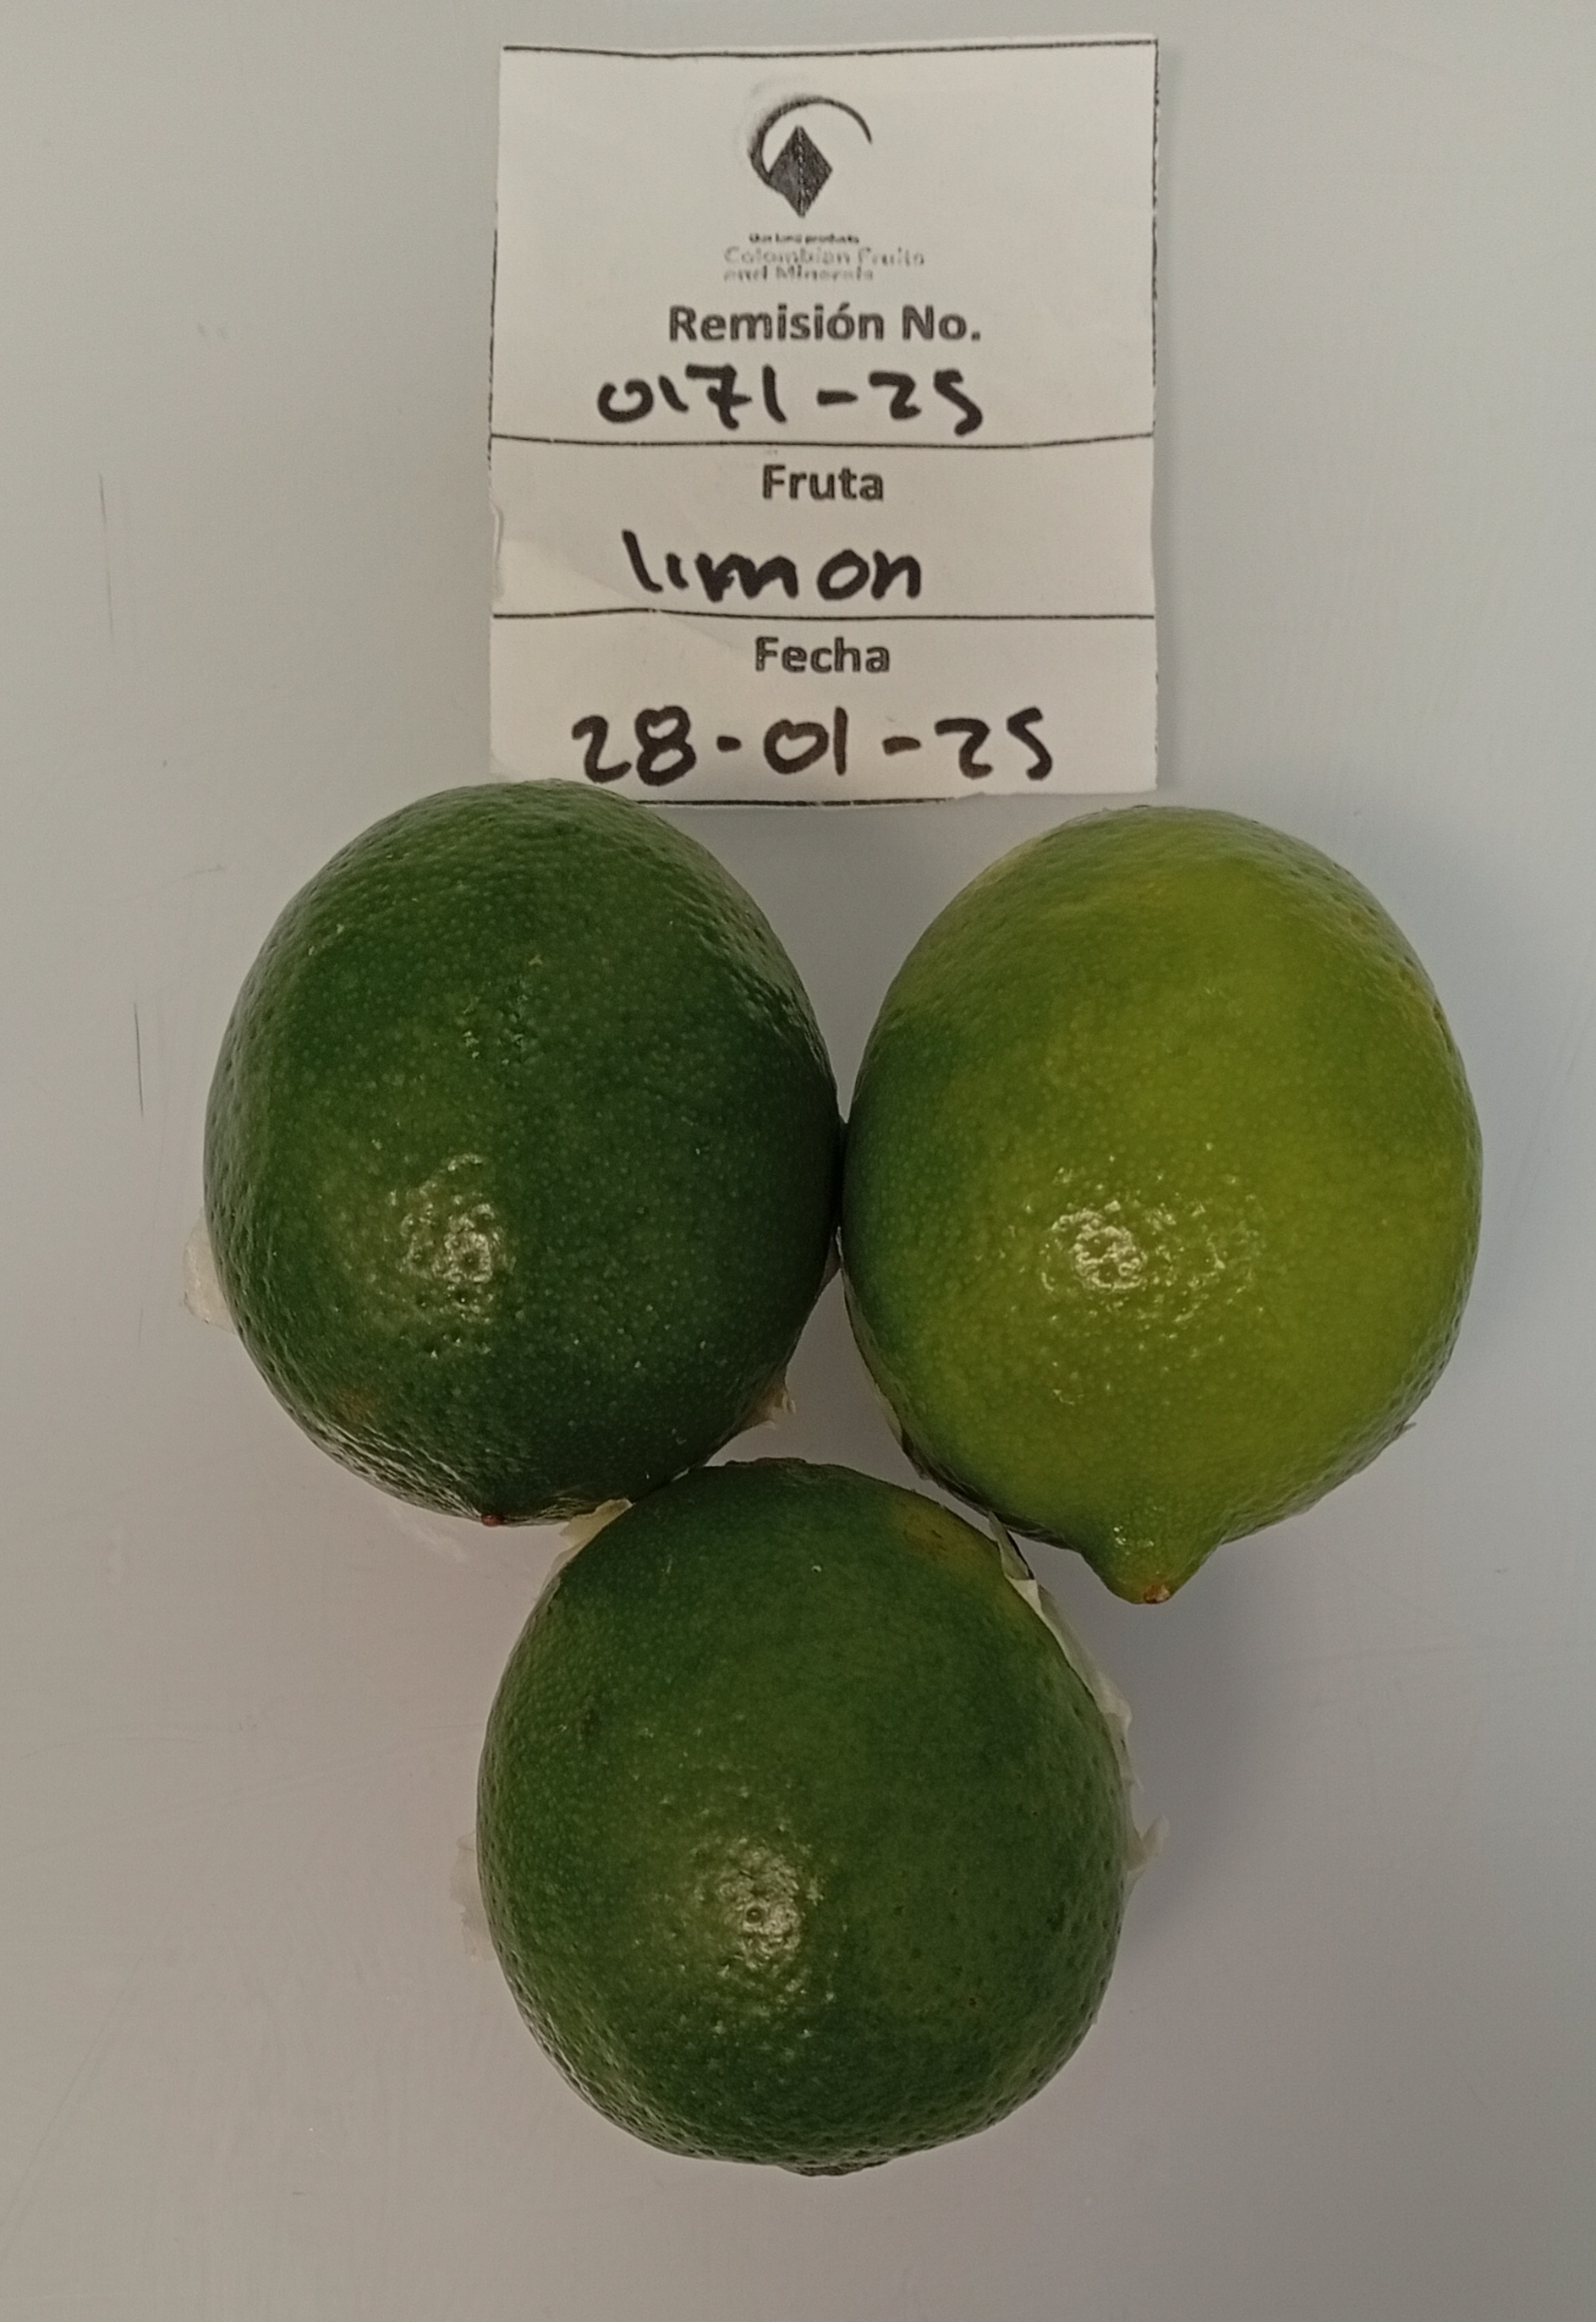 Our land products
Colombian Fruits
and Minerals
Remisión No.
0171-25
Fruta
limon
Fecha
28-01-25